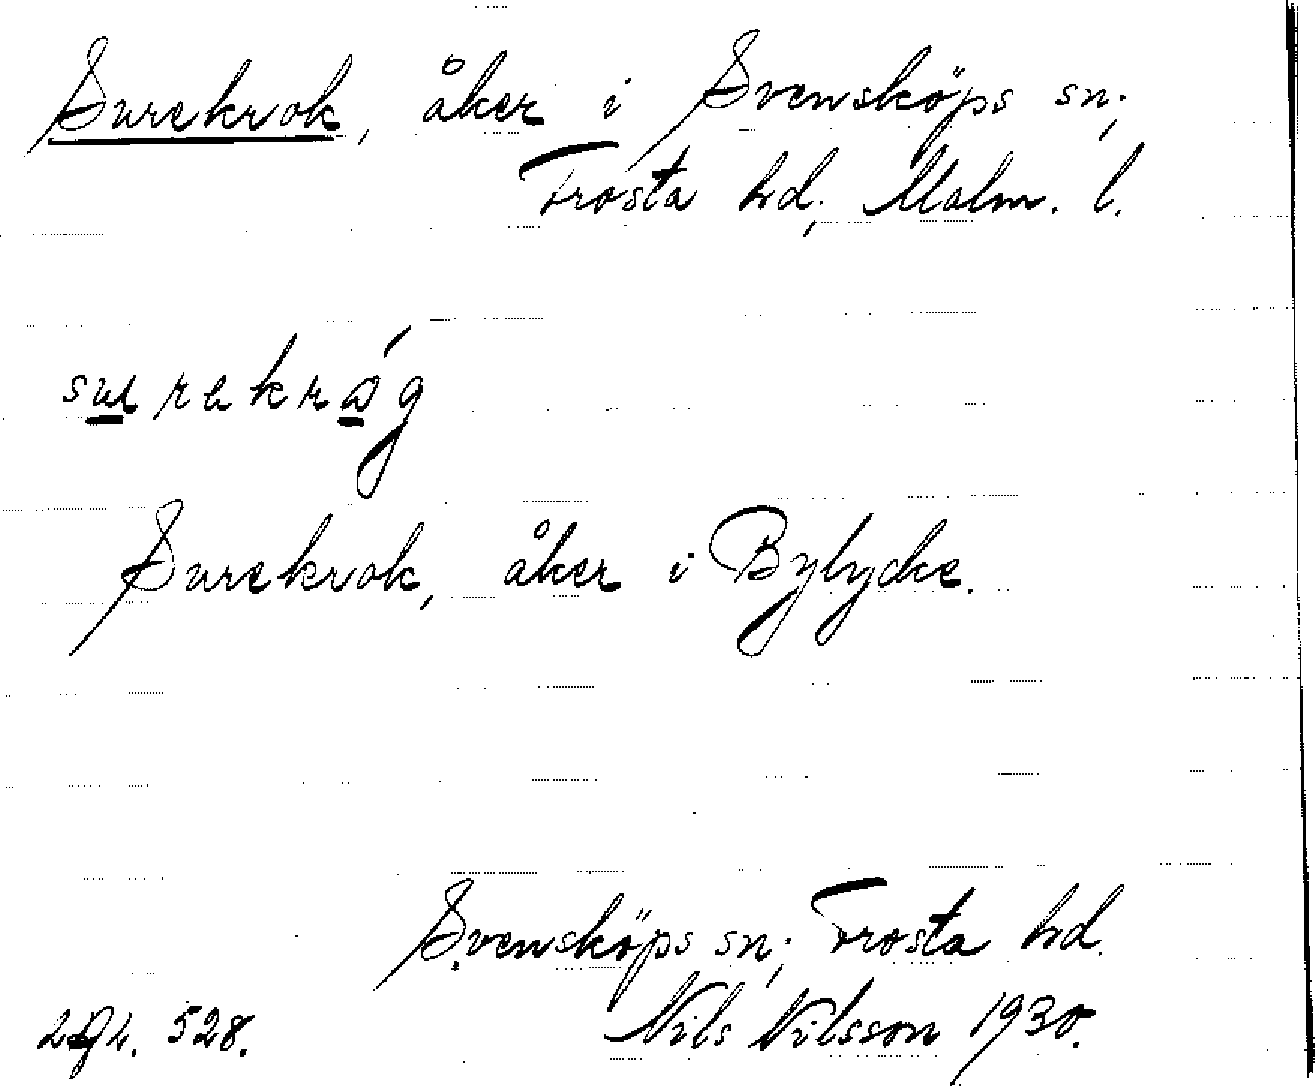 Surekrok, åker i Svensköps sn;
Frosta hd; Malm. l.
surekråg
Surekrok, åker i Bylycke.
Svensköps sn; Frosta hd.
528. Nils Nilsson 1930.